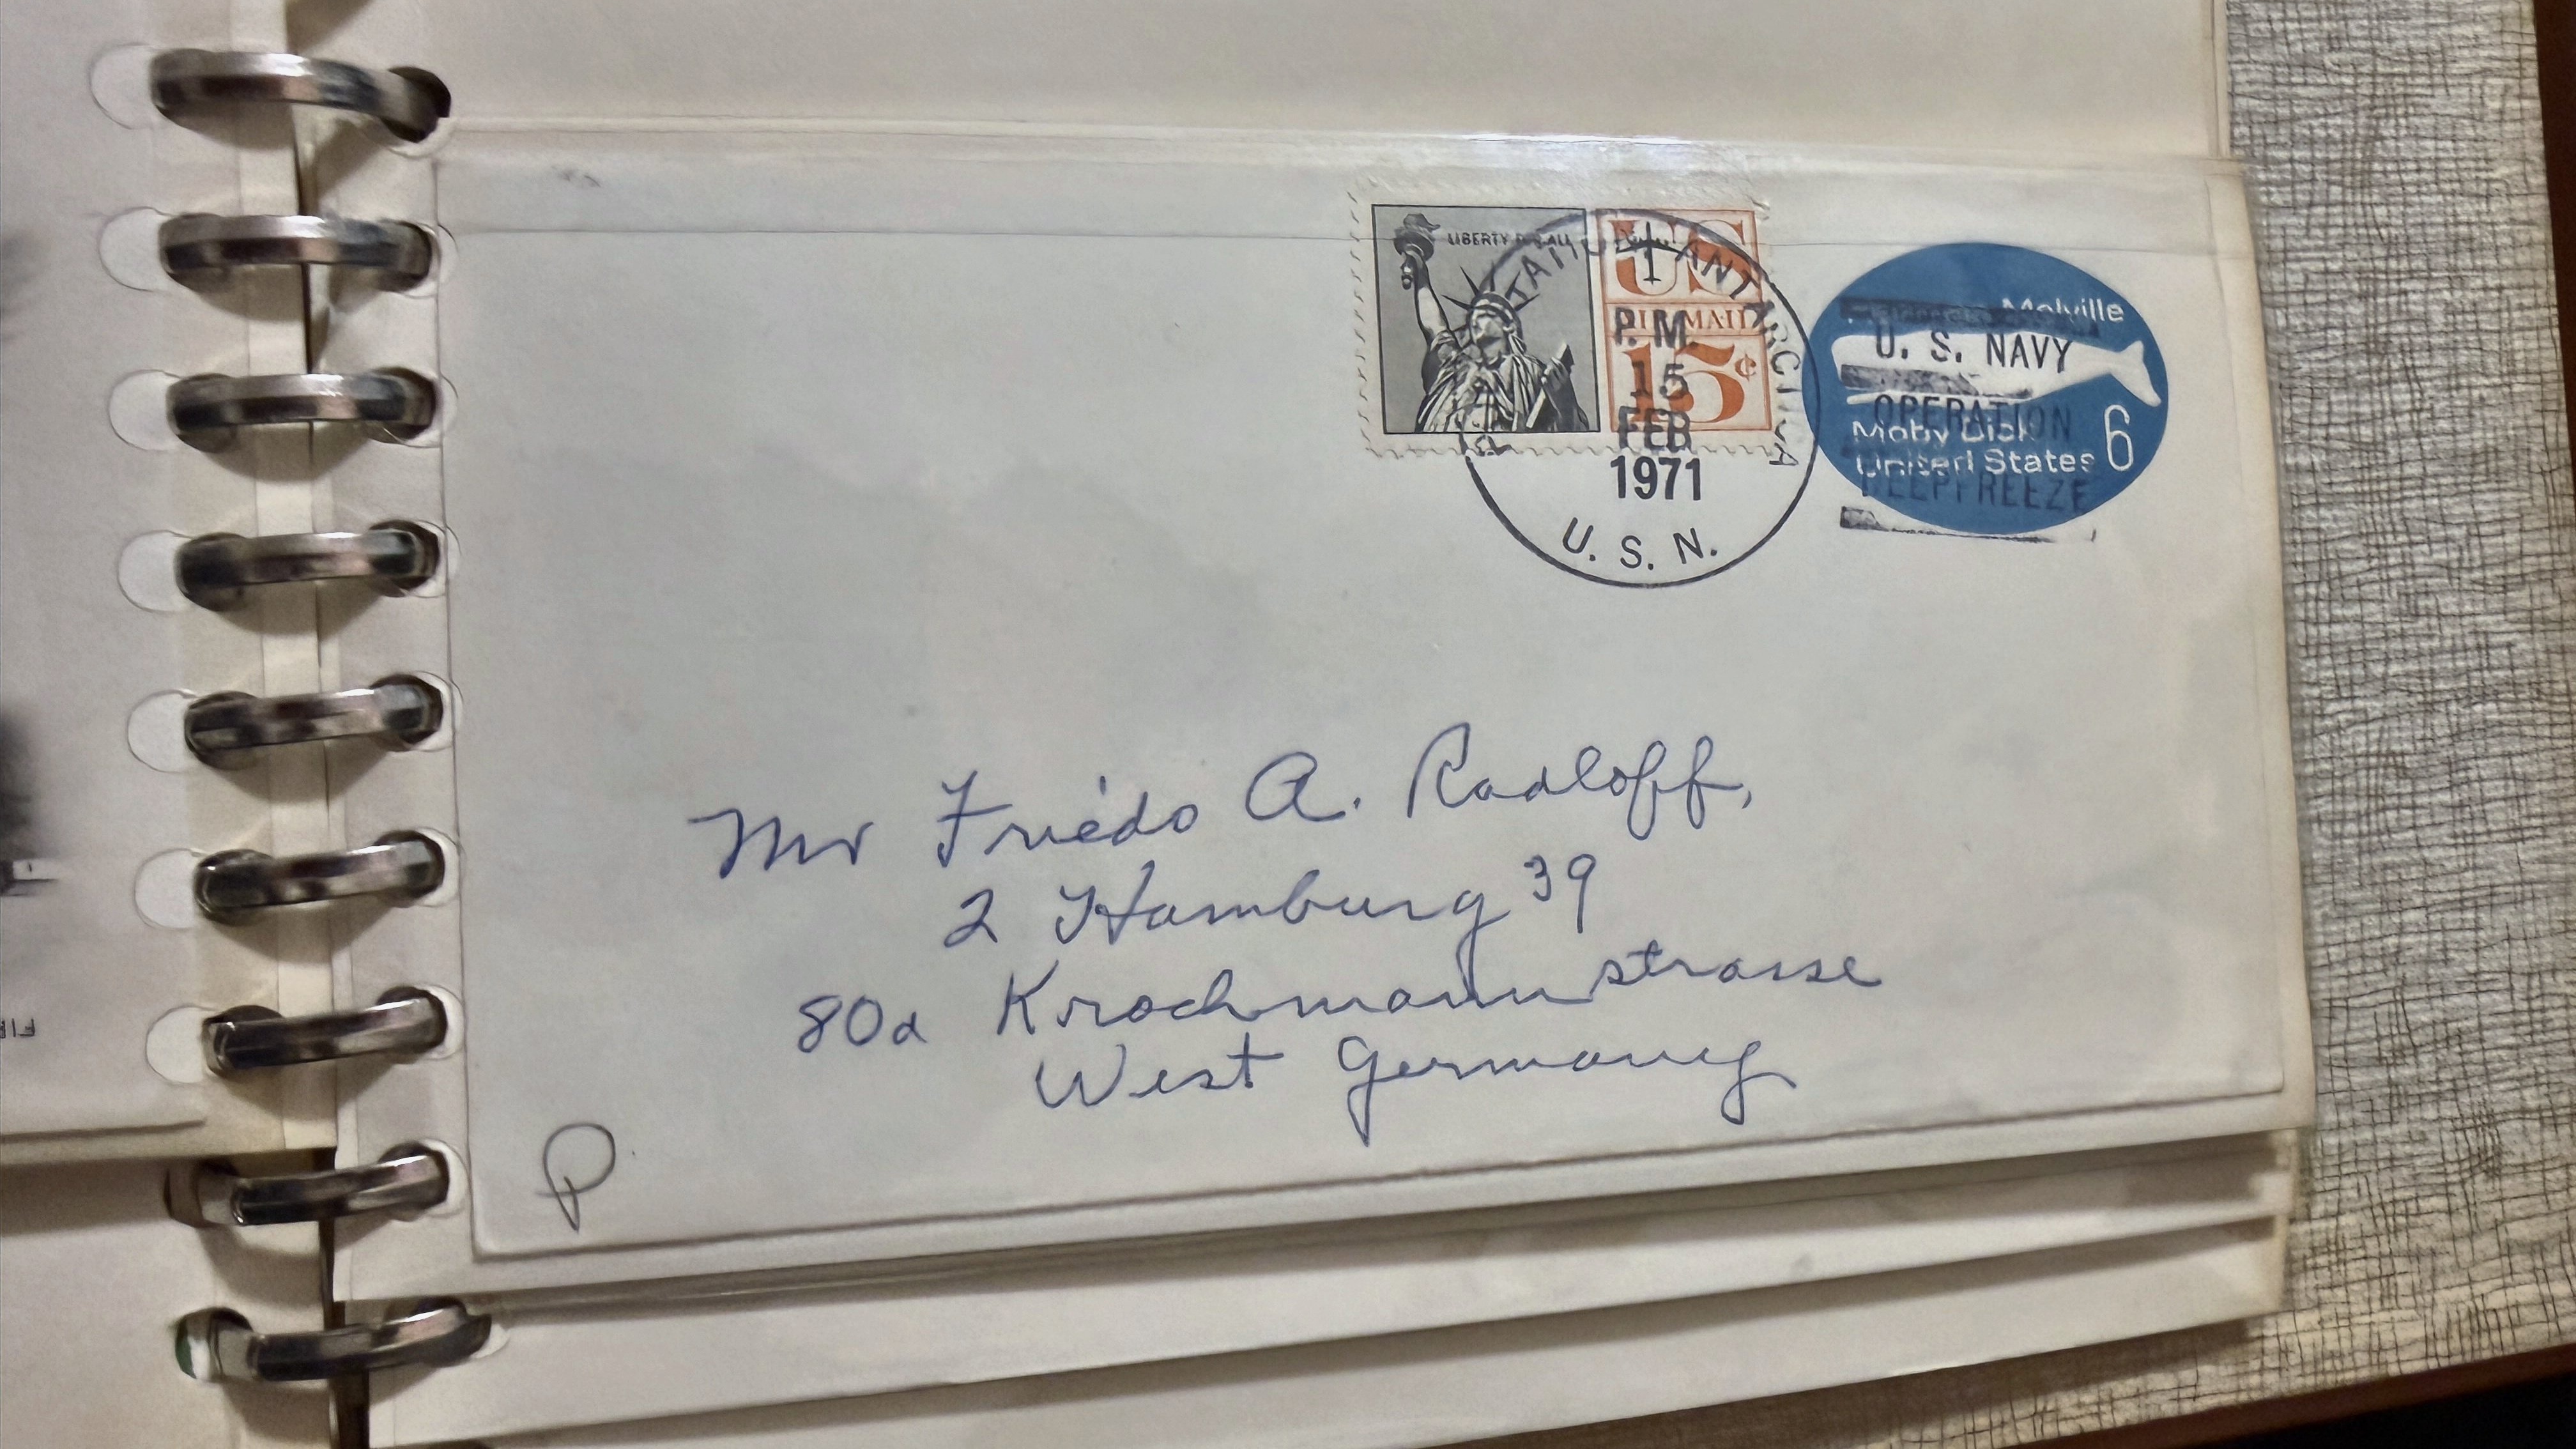 LIBERTY FOR ALL
US
AIR MAIL
15¢
ANTARCTICA
P.M.
15
FEB
1971
U. S. N.
Herman Melville
Moby Dick
United States 6
U. S. NAVY
OPERATION
DEEPFREEZE
Mr Friedo A. Radloff,
2 Hamburg 39
80a Krochmannstrasse
West Germany
P